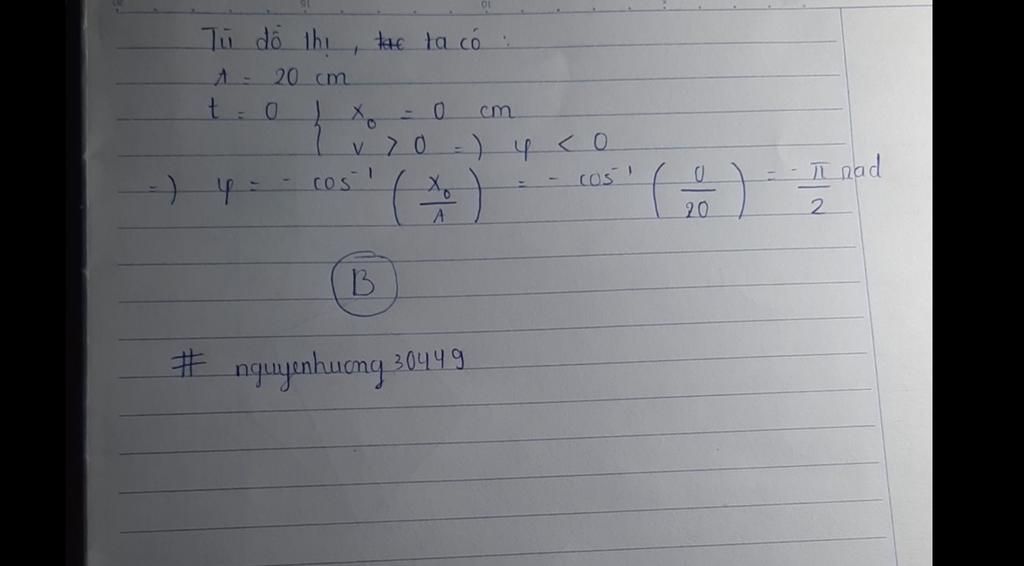 Từ đồ thị, ta có :
A = 20 cm
t = 0 { x₀ = 0 cm
v > 0 => φ < 0
=> φ = - cos⁻¹ (x₀/A) = - cos⁻¹ (0/20) = -π/2 rad
B
# nguyenhuong30449